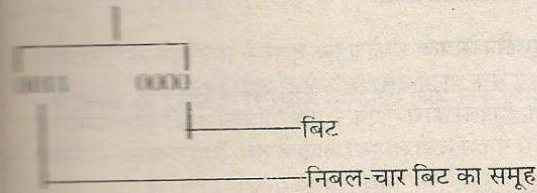 0000
बिट
निबल-चार बिट का समूह